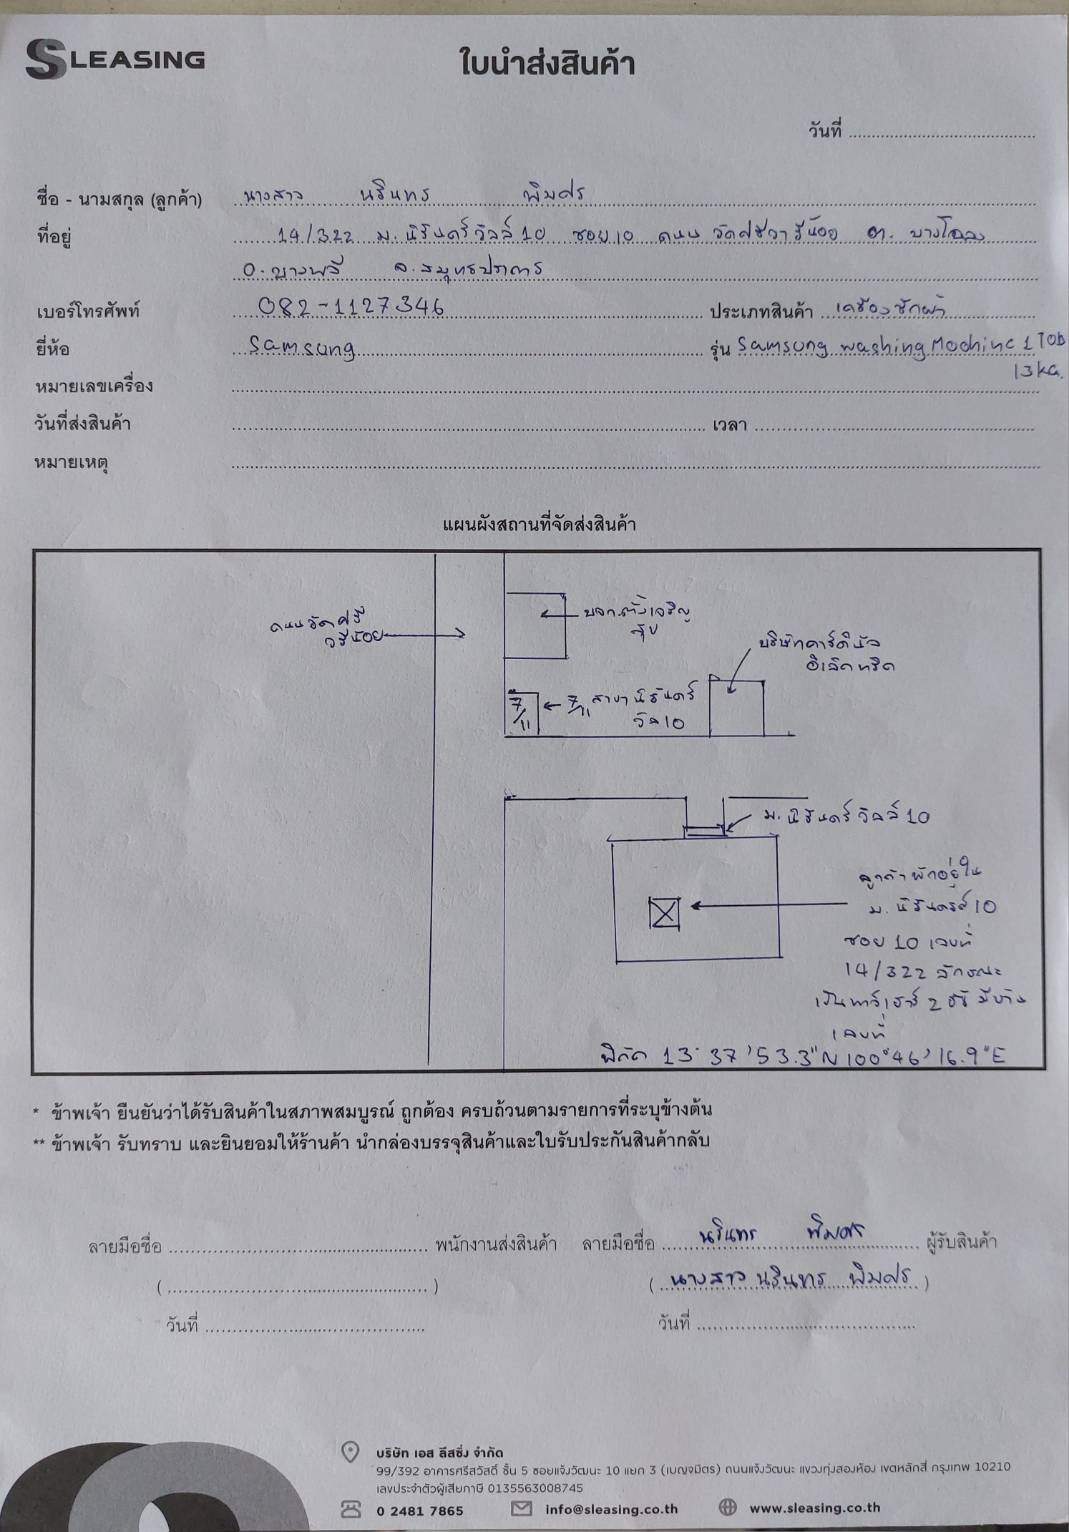 SLEASING
ใบนำส่งสินค้า
วันที่
ชื่อ - นามสกุล (ลูกค้า) นางสาว นรินทร พิมศร
ที่อยู่ 14/322 ม.นิรันดร์วิลล์ 10 ซอย 10 ถนน วัดศรีวารีน้อย ต. บางโฉลง
อ.บางพลี จ.สมุทรปราการ
เบอร์โทรศัพท์ 082-1127346 ประเภทสินค้า เครื่องซักผ้า
ยี่ห้อ Samsung รุ่น Samsung Washing Machine 1 Tob
13 KG.
หมายเลขเครื่อง
วันที่ส่งสินค้า เวลา
หมายเหตุ
แผนผังสถานที่จัดส่งสินค้า
ถนนวัดศรี
วารีน้อย
บจก.ตั้งเจริญ
บริษัทคาร์ดินัล
อิเล็คทริค
7/11
7/11 สาขา นิรันดร์
วิล 10
ม. นิรันดร์ วิลล์ 10
ลูกค้าพักอยู่ใน
ม. นิรันดร์ 10
ซอย 10 เลขที่
14/322 ลักษณะ
เป็นทาวน์เฮาส์ 2 ชั้น มีป้าย
เลขที่
พิกัด 13°37'53.3"N 100°46'16.9"E
* ข้าพเจ้า ยืนยันว่าได้รับสินค้าในสภาพสมบูรณ์ ถูกต้อง ครบถ้วนตามรายการที่ระบุข้างต้น
** ข้าพเจ้า รับทราบ และยินยอมให้ร้านค้า นำกล่องบรรจุสินค้าและใบรับประกันสินค้ากลับ
ลายมือชื่อ พนักงานส่งสินค้า ลายมือชื่อ นรินทร พิมศร ผู้รับสินค้า
( ) ( นางสาว นรินทร พิมศร )
วันที่ วันที่
บริษัท เอส ลีสซิ่ง จำกัด
99/392 อาคารศรีสวัสดิ์ ชั้น 5 ซอยแจ้งวัฒนะ 10 แยก 3 (เบญจมิตร) ถนนแจ้งวัฒนะ แขวงทุ่งสองห้อง เขตหลักสี่ กรุงเทพ 10210
เลขประจำตัวผู้เสียภาษี 0135563008745
0 2481 7865 info@sleasing.co.th www.sleasing.co.th